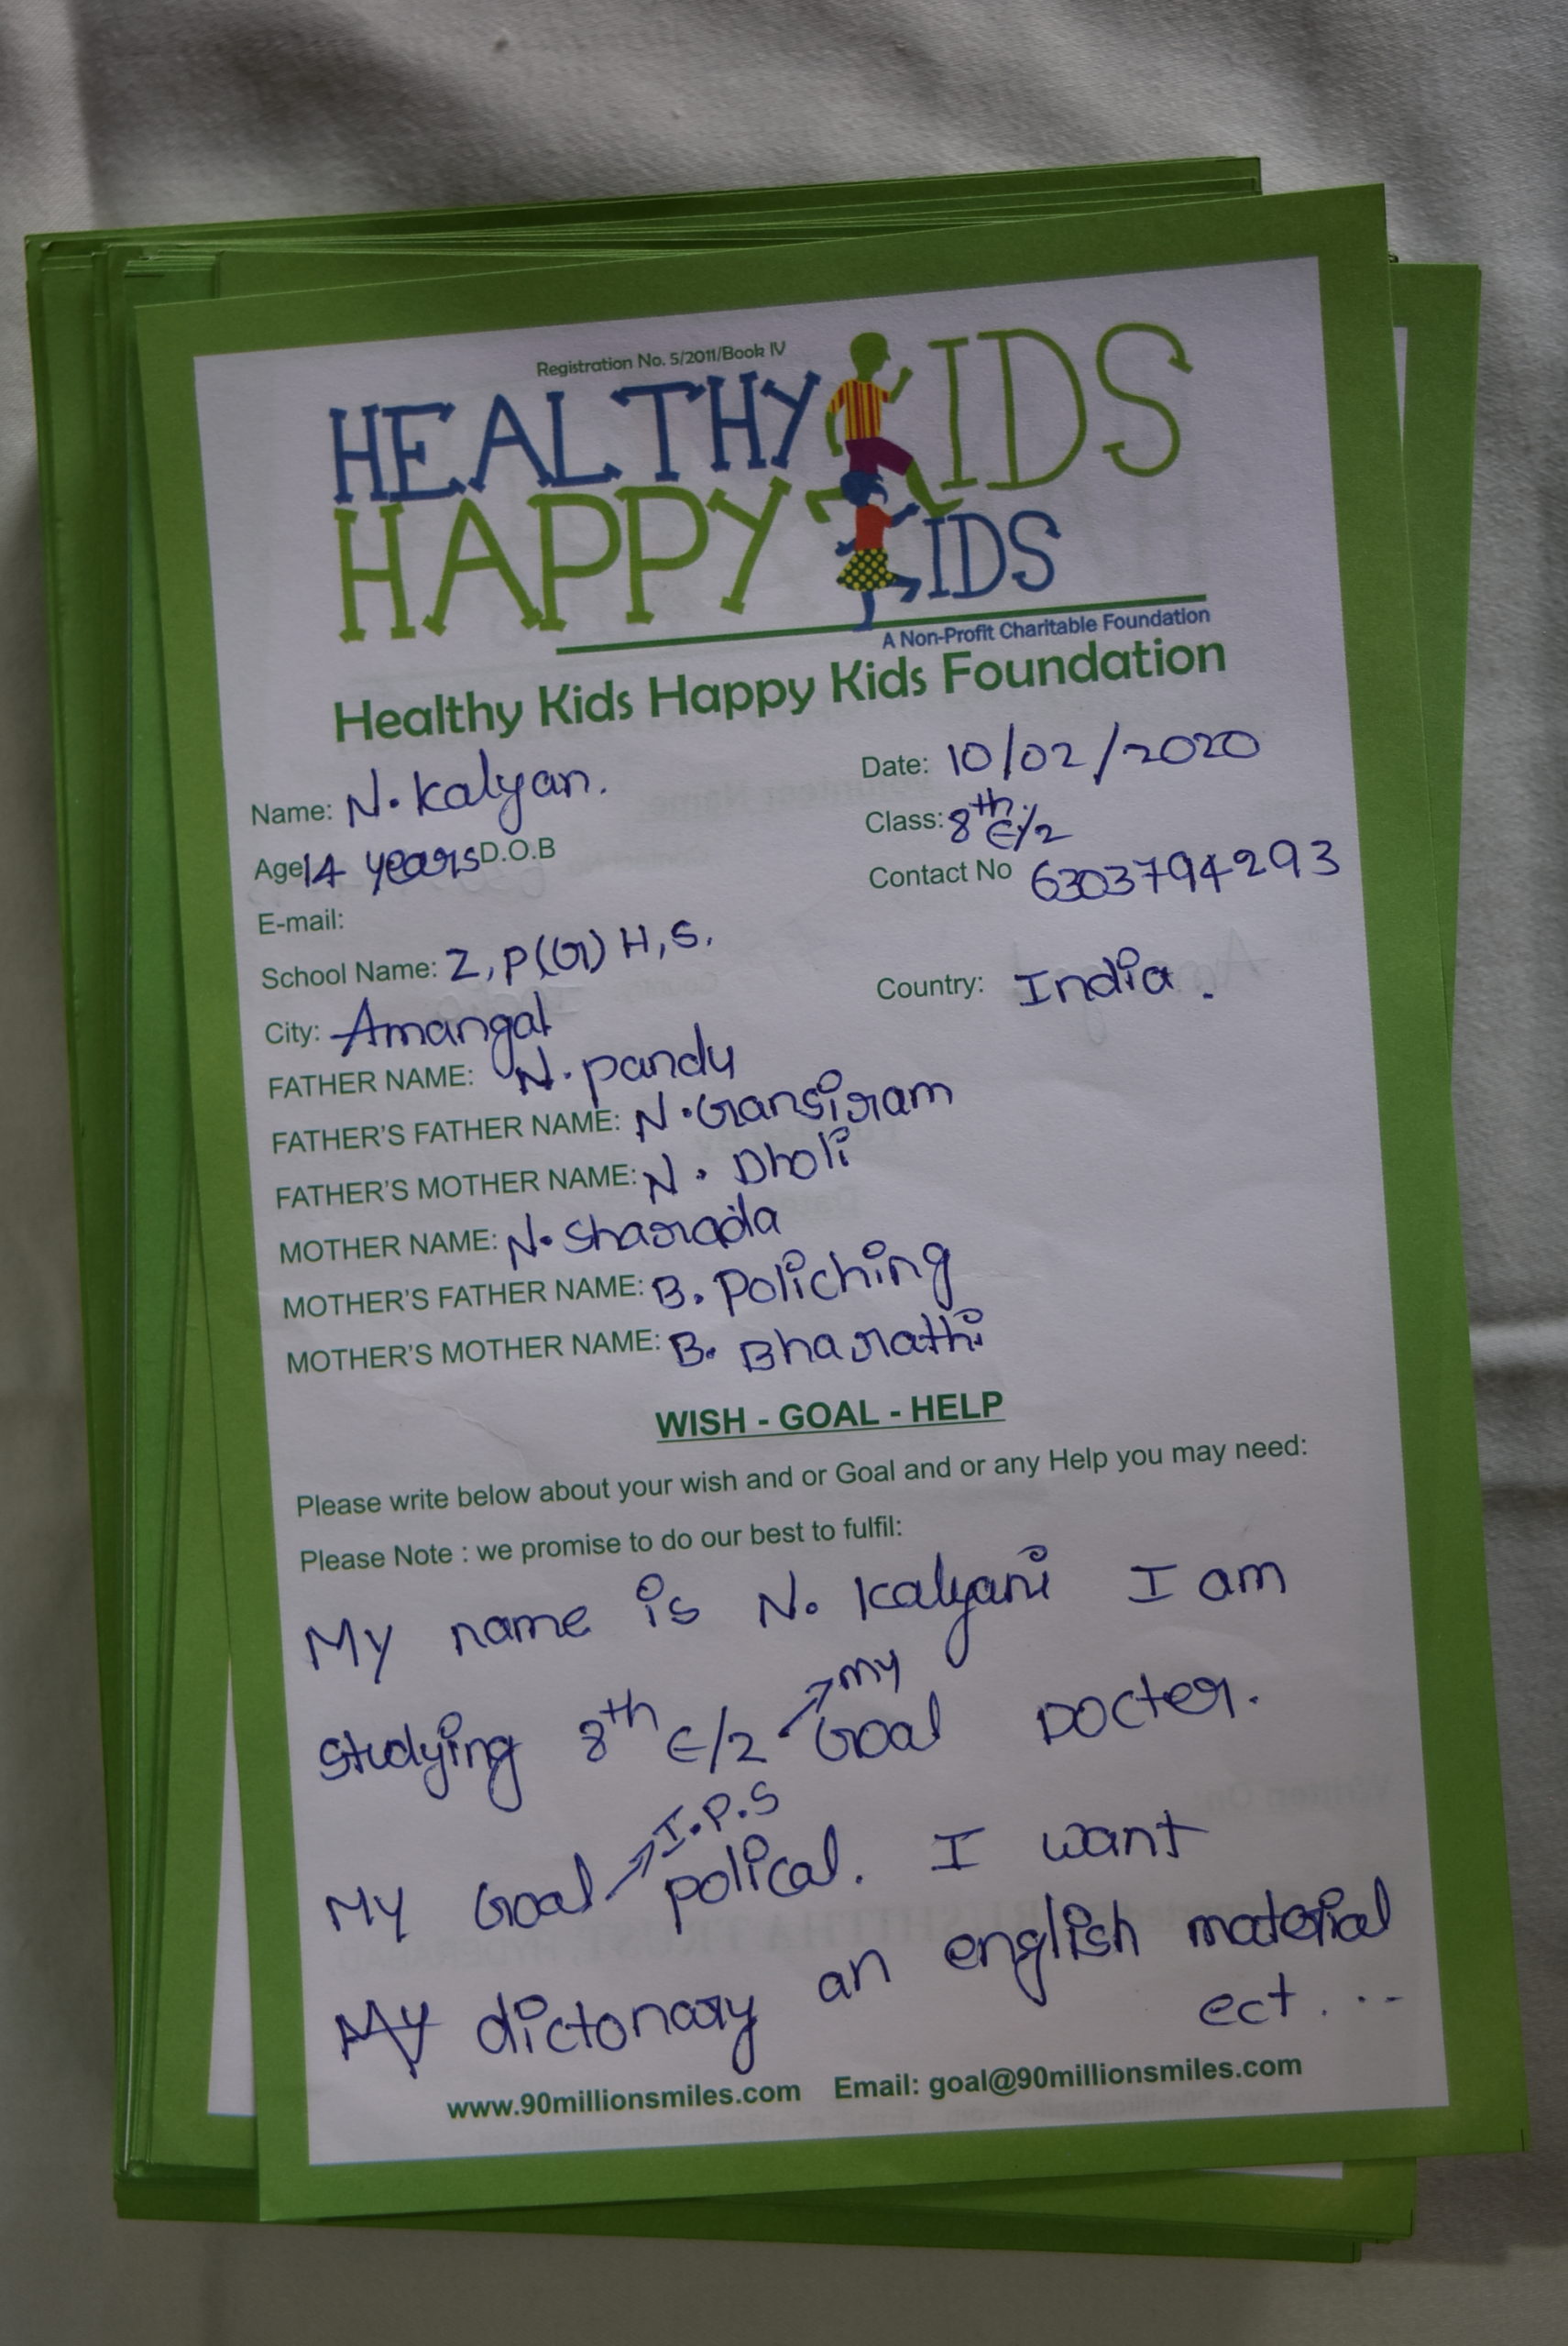 Registration No. 5/2011/Book IV
HEALTHY KIDS
HAPPY KIDS
A Non-Profit Charitable Foundation
Healthy Kids Happy Kids Foundation
Name: N. Kalyan. Date: 10/02/2020
Age 14 years D.O.B Class: 8th E/2
E-mail: Contact No 6303794293
School Name: Z, P(G) H, S,
City: Amangal Country: India.
FATHER NAME: N. pandu
FATHER'S FATHER NAME: N. Gansiram
FATHER'S MOTHER NAME: N. Dholi
MOTHER NAME: N. Sharada
MOTHER'S FATHER NAME: B. Poliching
MOTHER'S MOTHER NAME: B. Bharathi
WISH - GOAL - HELP
Please write below about your wish and or Goal and or any Help you may need:
Please Note : we promise to do our best to fulfil:
My name is N. Kalyani I am
studying 8th E/2 → My Goal Docter.
My Goal → I.P.S polical. I want
My dictonary an english material
ect...
www.90millionsmiles.com Email: goal@90millionsmiles.com